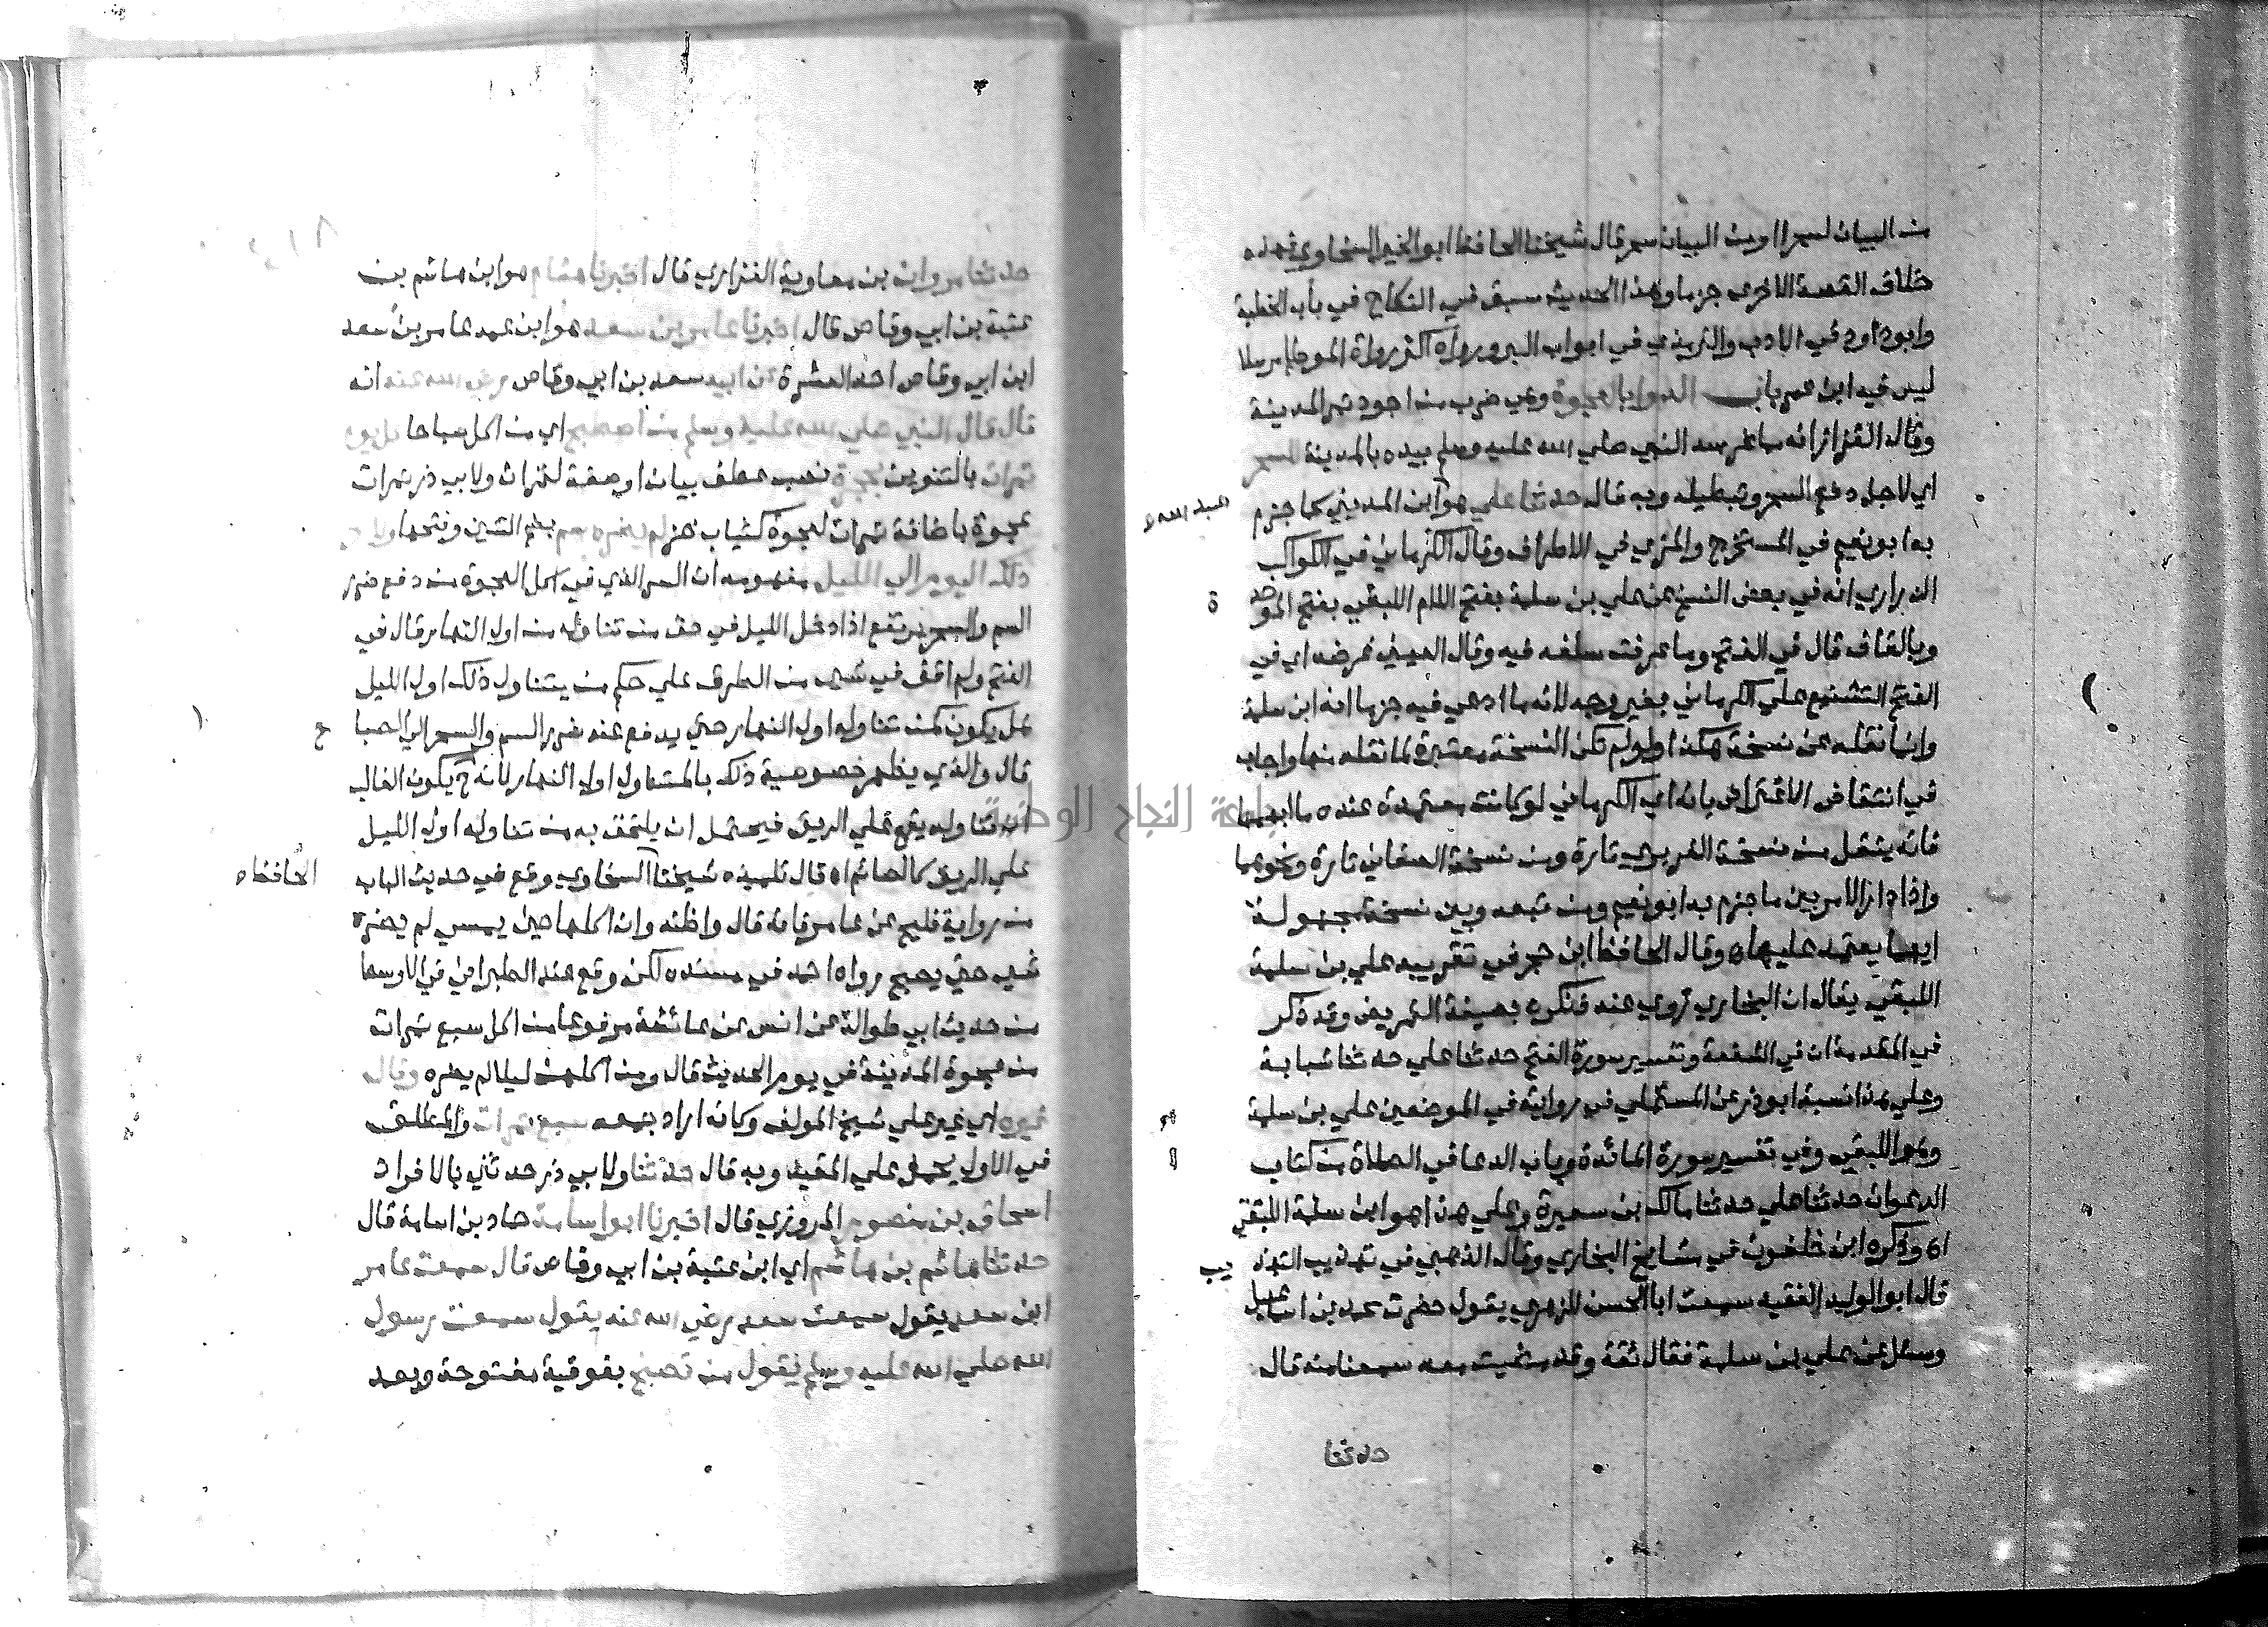 من البيان لسحرا او من البيان سحر قال شيخنا الحافظ ابو الخير السخاوي فهذه
خلاف القصة الاخرى جزما وهذا الحديث سبق في النكاح في باب الخطبة
وابو داود في الادب والترمذي في ابواب البر ورواه اكثر رواة الموطا مرسلا
ليس فيه ابن عمر باب الدوا بالعجوة وهي ضرب من اجود تمر المدينة
وقال القزاز انه مما غرسه النبي صلي الله عليه وسلم بيده بالمدينة للسحر
اي لاجل دفع السحر وتبطيله وبه قال حدثنا علي هو ابن المديني كما جزم
به ابو نعيم في المستخرج والمزي في الاطراف وقال الكرماني في الكواكب
الدراري انه في بعض النسخ عن علي بن سلمة بفتح اللام اللبقي بفتح الموحدة
وبالقاف قال في الفتح وما عرفت سلفه فيه وقال العيني غرضه اي في
الفتح التشنيع علي الكرماني بغير وجه لانه ما ادعي فيه جزما انه ابن سلمة
وانما نقله عن نسخة هكذا ولو لم تكن النسخة معتبرة لما نقله منها واجاب
في انتقاض الاعتراض بانه اي الكرماني لو كانت معتمدة عنده ما ابهمها
فانه ينقل من نسخة الفربري تارة ومن نسخة الصغاني تارة ونحوهما
واذا دار الامر بين ما جزم به ابو نعيم ومن تبعه وبين نسخة مجهولة
ايهما يعتمد عليها اه وقال الحافظ ابن حجر في تقريبه علي بن سلمة
اللبقي يقال ان البخاري روي عنه فذكره بصيغة التمريض وقد ذكر
في المقدمة ان في الشفعة وتفسير سورة الفتح حدثنا علي حدثنا شبابة
وعلي هذا نسبة ابو ذر عن المستملي في روايته في الموضعين علي بن سلمة
وهو اللبقي وفي تفسير سورة المائدة وباب الدعا في الصلاة من كتاب
الدعوات حدثنا علي حدثنا مالك بن سعيرة وعلي هذا هو ابن سلمة اللبقي
اه وذكره ابن خلفون في مشايخ البخاري وقال الذهبي في تهذيب التهذيب
قال ابو الوليد الفقيه سمعت ابا الحسن الزهري يقول حضرت محمد بن اسماعيل
وسئل عن علي بن سلمة فقال ثقة وقد مضيت معه سمعنا منه قال
حدثنا
حدثنا مروان بن معاوية الفزاري قال اخبرنا هشام هو ابن هاشم بن
عتبة بن ابي وقاص قال اخبرنا عامر بن سعد هو ابن عمه عامر بن سعد
ابن ابي وقاص احد العشرة عن ابيه سعد بن ابي وقاص رضي الله عنه انه
قال قال النبي صلي الله عليه وسلم من اصطبح اي من اكل صباحا كل يوم
تمرات بالتنوين عجوة نصب عطف بيان او صفة لتمرات ولابي ذر تمرات
عجوة باضافة تمرات لعجوة كثياب خز لم يضره سم بضم السين وفتحها ولا
ذلك اليوم الي الليل مفهومه ان السر الذي في اكل العجوة من دفع ضرر
السم والسحر يرتفع اذا دخل الليل في حق من تناوله من اول النهار قال في
الفتح ولم اقف في شيء من الطرق علي حكم من يتناول ذلك اول الليل
هل يكون كمن تناوله اول النهار حتي يدفع عنه ضرر السم والسحر الي الصباح
قال والذي يظهر خصوصية ذلك بالمتناول اول النهار لانه ح يكون الغالب
ان تناوله يقع علي الريق فيحتمل ان يلحق به من تناوله اول الليل
علي الريق كالصائم اه قال تلميذه شيخنا السخاوي وقع في حديث الباب
الحافظ
من رواية فليح عن عامر فانه قال واظنه وان اكلها حين يمسي لم يضره
شيء حتي يصبح رواه احمد في مسنده لكن وقع عند الطبراني في الاوسط
من حديث ابي طوالة عن انس عن عائشة مرفوعا من اكل سبع تمرات
من عجوة المدينة في يوم الحديث قال ومن اكلهن ليلا لم يضره وقال
غيره اي غير علي شيخ المولف وكانه اراد جمعه سبع تمرات والمطلق
في الاول يحمل علي المقيد وبه قال حدثنا ولابي ذر حدثني بالافراد
اسحاق بن منصور المروزي قال اخبرنا ابو اسامة حماد بن اسامة قال
حدثنا هاشم بن هاشم اي ابن عتبة بن ابي وقاص قال سمعت عامر
ابن سعد يقول سمعت سعد رضي الله عنه يقول سمعت رسول
الله صلي الله عليه وسلم يقول من تصبح بفوقية مفتوحة وبعد
جامعة النجاح الوطنية